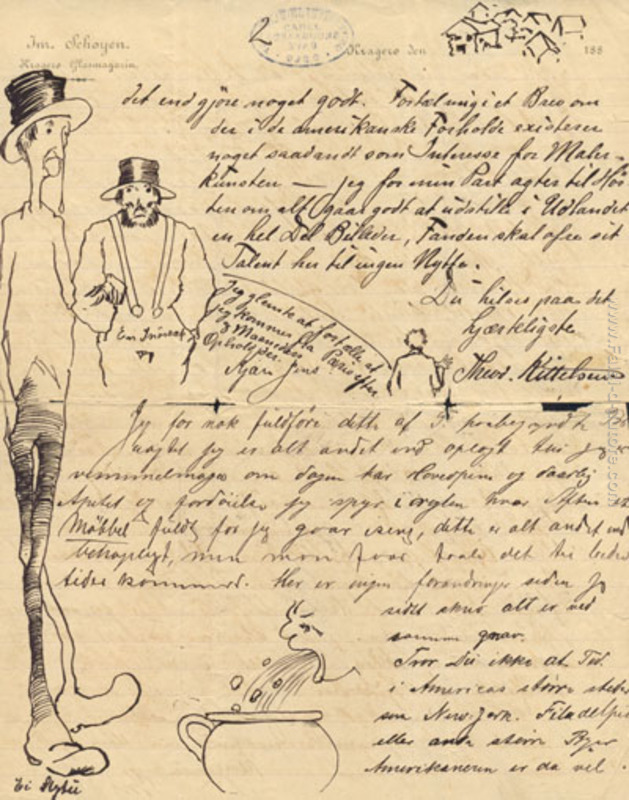 Jm. Schøyen.
Kragerø Glasmagazin.
2
Kragerø den 188
det end gjöre noget godt. Fortæl mig i et Brev om
der i de amerikanske Forholde existerer
noget saadandt som Interesse for Maler-
kunsten — jeg for min Part agter til Hös-
ten om alt gaar godt at udstille i Udlandet
en hel Del Billeder, Fanden skal ofre sit
Talent her til ingen Nytte.
Du hilses paa det
hjærteligste
Theod. Kittelsen
Jeg glemte at fortælle at
jeg kommer fra Paris efter
3 Maaneders
Ophold
En Inter
Jeg faar nok fuldföre dette af
nöjet jeg er alt andet end oplagt thi jeg
om dagen har Hovedpine og daarlig
Apetit og jeg spyr i hver Aften
Möbbel fuldt för jeg gaar iseng, dette er alt andet end
behageligt, men man faar taale det til bedre
tider kommer. Her er ingen forandringer siden jeg
sidst skrev alt er ved
samme
Tror Du ikke at Ted.
i Americas större steder
som New York. Filadelfia
eller andre större Byer
Amerikanerne er da vel